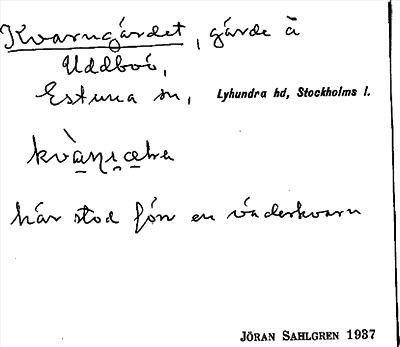 Kvarngärdet, gärde å
Uddboö,
Estuna sn, Lyhundra hd, Stockholms l.
här stod förr en väderkvarn
JÖRAN SAHLGREN 1937